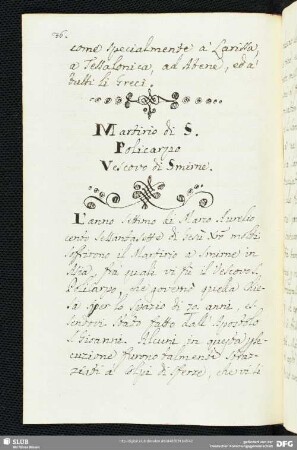 36.
come specialmente a' Larissa,
a Tessalonica, ad Atene, ed a'
tutti li Greci.
Martirio di S.
Policarpo
Vescovo di Smirne.
L'anno settimo di Marco Aurelio
cento sessantasette di Gesù Xto molti
soffrirono il Martirio a Smirne in
Asia, fra' quali vi fu il Vescovo S.
Policarpo, che governò quella Chie-
sa per lo spazio di 70 anni, es-
sendovi stato fatto dall'Apostolo
S. Giovanni. Alcuni in questa per-
cuzione furono talmente straz-
ziati a' colpi di sferze, che vi si
SLUB
DFG